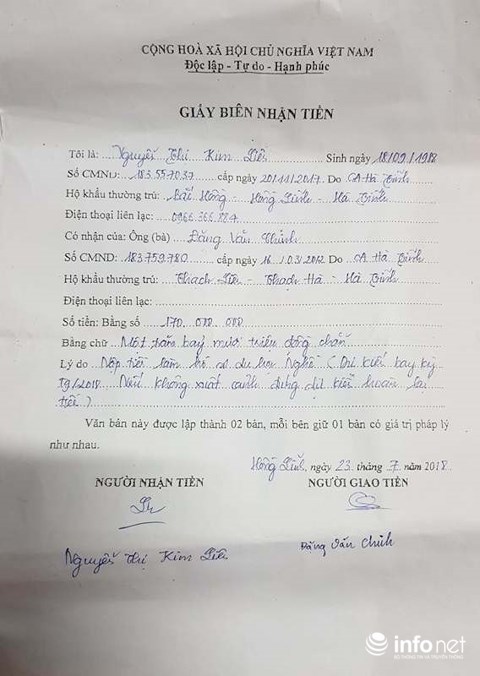 CỘNG HOÀ XÃ HỘI CHỦ NGHĨA VIỆT NAM
Độc lập - Tự do - Hạnh phúc
GIẤY BIÊN NHẬN TIỀN
Tôi là: Nguyễn Thị Kim Liên Sinh ngày 18/09/1988
Số CMND: 183.557037 cấp ngày 20/11/2017. Do CA Hà Tĩnh
Hộ khẩu thường trú: Hồng - Hồng Lĩnh - Hà Tĩnh
Điện thoại liên lạc: 0966.366.884
Có nhận của: Ông (bà) Đặng Văn Chinh
Số CMND: 183759780 cấp ngày 16/03/2012 Do CA Hà Tĩnh
Hộ khẩu thường trú: Thạch - Thạch Hà - Hà Tĩnh
Điện thoại liên lạc:
Số tiền: Bằng số 170.000.000
Bằng chữ Một trăm bảy mươi triệu đồng chẵn
Lý do Nộp tiền làm hồ sơ du học Nghề (Dự kiến bay kỳ
T9/2018. Nếu không xuất cảnh đúng dự kiến hoàn lại
tiền)
Văn bản này được lập thành 02 bản, mỗi bên giữ 01 bản có giá trị pháp lý
như nhau.
Hồng Lĩnh, ngày 23 tháng 7 năm 2018
NGƯỜI NHẬN TIỀN NGƯỜI GIAO TIỀN
Nguyễn Thị Kim Liên Đặng Văn Chinh
infonet